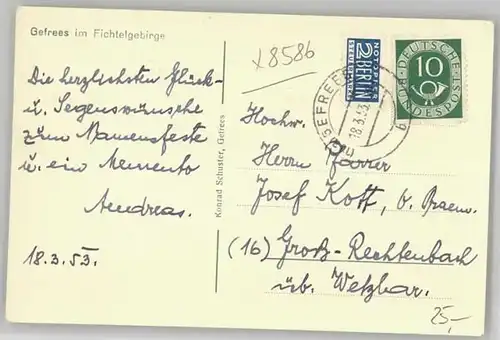 Gefrees im Fichtelgebirge
x8586
Die herzlichsten Glück-
u. Segenswünsche
zum Namensfeste
u. ein Memento
Andreas.
18.3.53.
Konrad Schuster, Gefrees
NOTOPFER
2 BERLIN
STEUERMARKE
DEUTSCHE
10
BUNDESPOST
GEFREES
18.3.53
Hochw.
Herrn Pfarrer
Josef Kott, o. Praem.
(16) Groß-Rechtenbach
üb. Wetzlar.
25,-